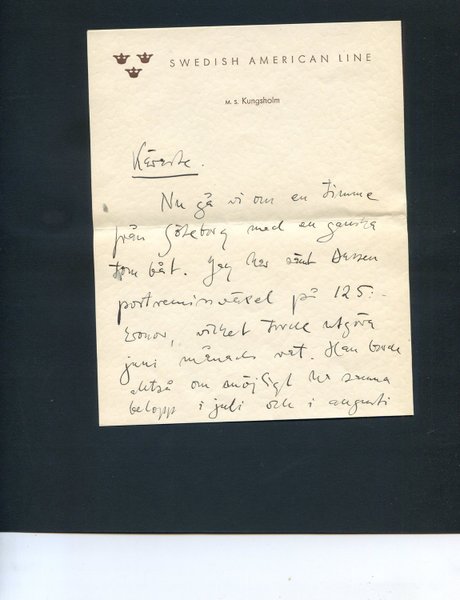 SWEDISH AMERICAN LINE
M. S. Kungsholm
Käraste.
Nu gå vi om en timme
från Göteborg med en ganska
tom båt. Jag har sänt
postremissväxel på 125:-
kronor, vilket torde utgöra
juni månads rat. Han borde
altså om möjligt ha samma
belopp i juli och i augusti